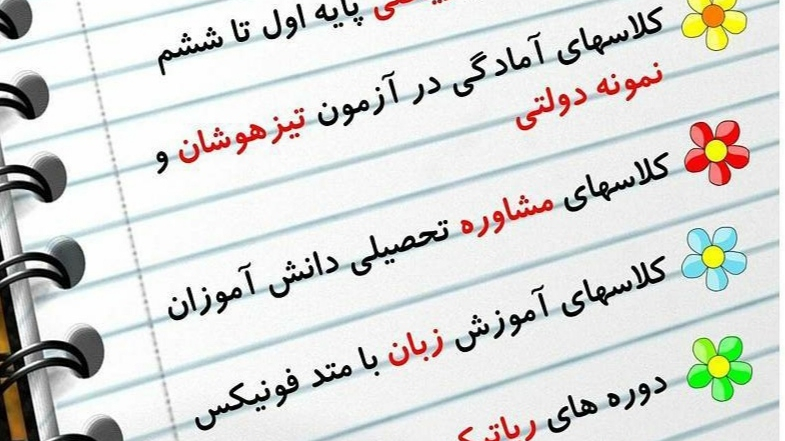 پایه اول تا ششم
کلاسهای آمادگی در آزمون تیزهوشان و
نمونه دولتی
کلاسهای مشاوره تحصیلی دانش آموزان
کلاسهای آموزش زبان با متد فونیکس
دوره های